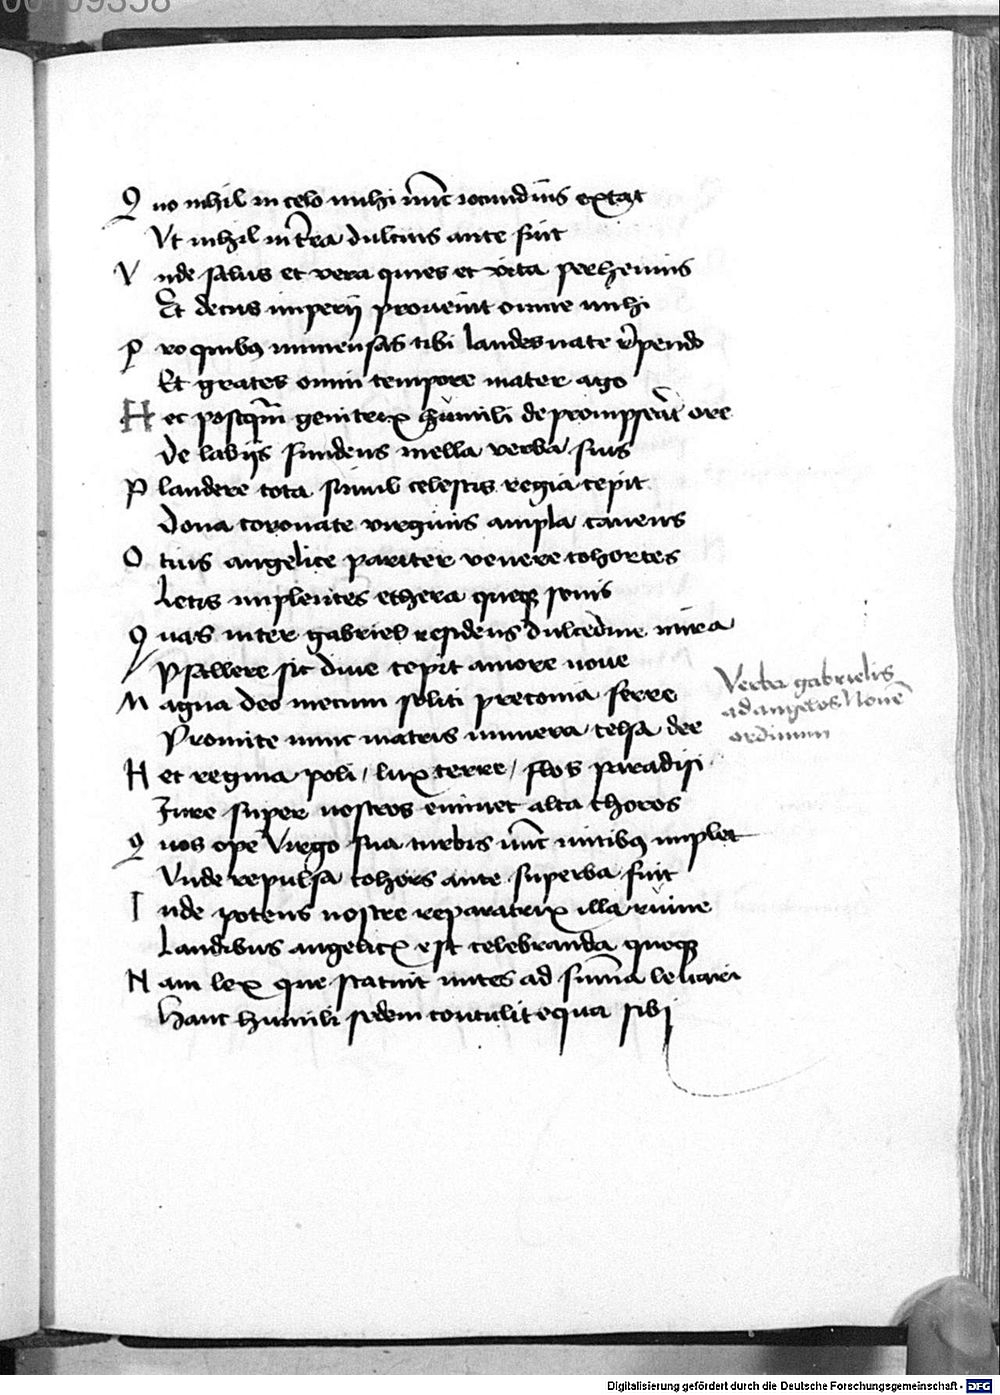 00109358
Quo nihil in celo mihi nūc iocundius extat
Vt nihil in t̄ra dulcius ante fuit
Vnde salus et vera quies et vita perhennis
Et decus imperij prouenit omne mihi
Pro quibus immensas tibi laudes nate r̄pendo
Et grates omni tempore mater ago
Hec postq̄m genitrix humili deprompserat ore
De labijs fundens mella verba suis
Plaudere tota simul celestis regia cepit
Dona coronate virginis ampla canens
Ocius angelice pariter venere cohortes
Letis implentes ethera queque sonis
Quas inter gabriel residens dulcedine mira
Psallere sic diue cepit amore noue
Magna deo mecum soliti preconia ferre
Promite nunc matris munera celsa dee
Hec regina poli / lux terre / flos paradisi
Jure super nostros eminet alta choros
Quos ope Virgo sua turbis nūc mitibus implet
Vnde repulsa cohors ante superba fuit
Inde potens nostre reparatrix illa ruine
Laudibus angelicis est celebranda queque
Nam lex que statuit mites ad sum̄a leuari
Hanc humili sedem contulit equa sibi
Verba gabrielis
ad angelos Nouē
ordinum
Digitalisierung gefördert durch die Deutsche Forschungsgemeinschaft - DFG